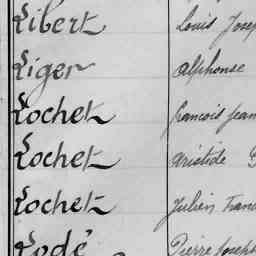 Libert Louis Josep
Liger Alphonse
Lochet françois Jean
Lochet Aristide
Lochet Julien Franc
Lodé Pierre Joseph